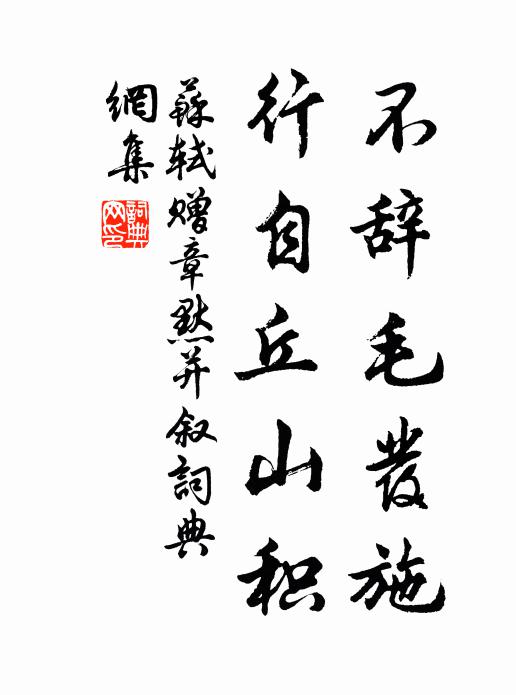 不辞毛發施
行自丘山积
蘇軾赠章默并叙詞典
網集
詞典网印